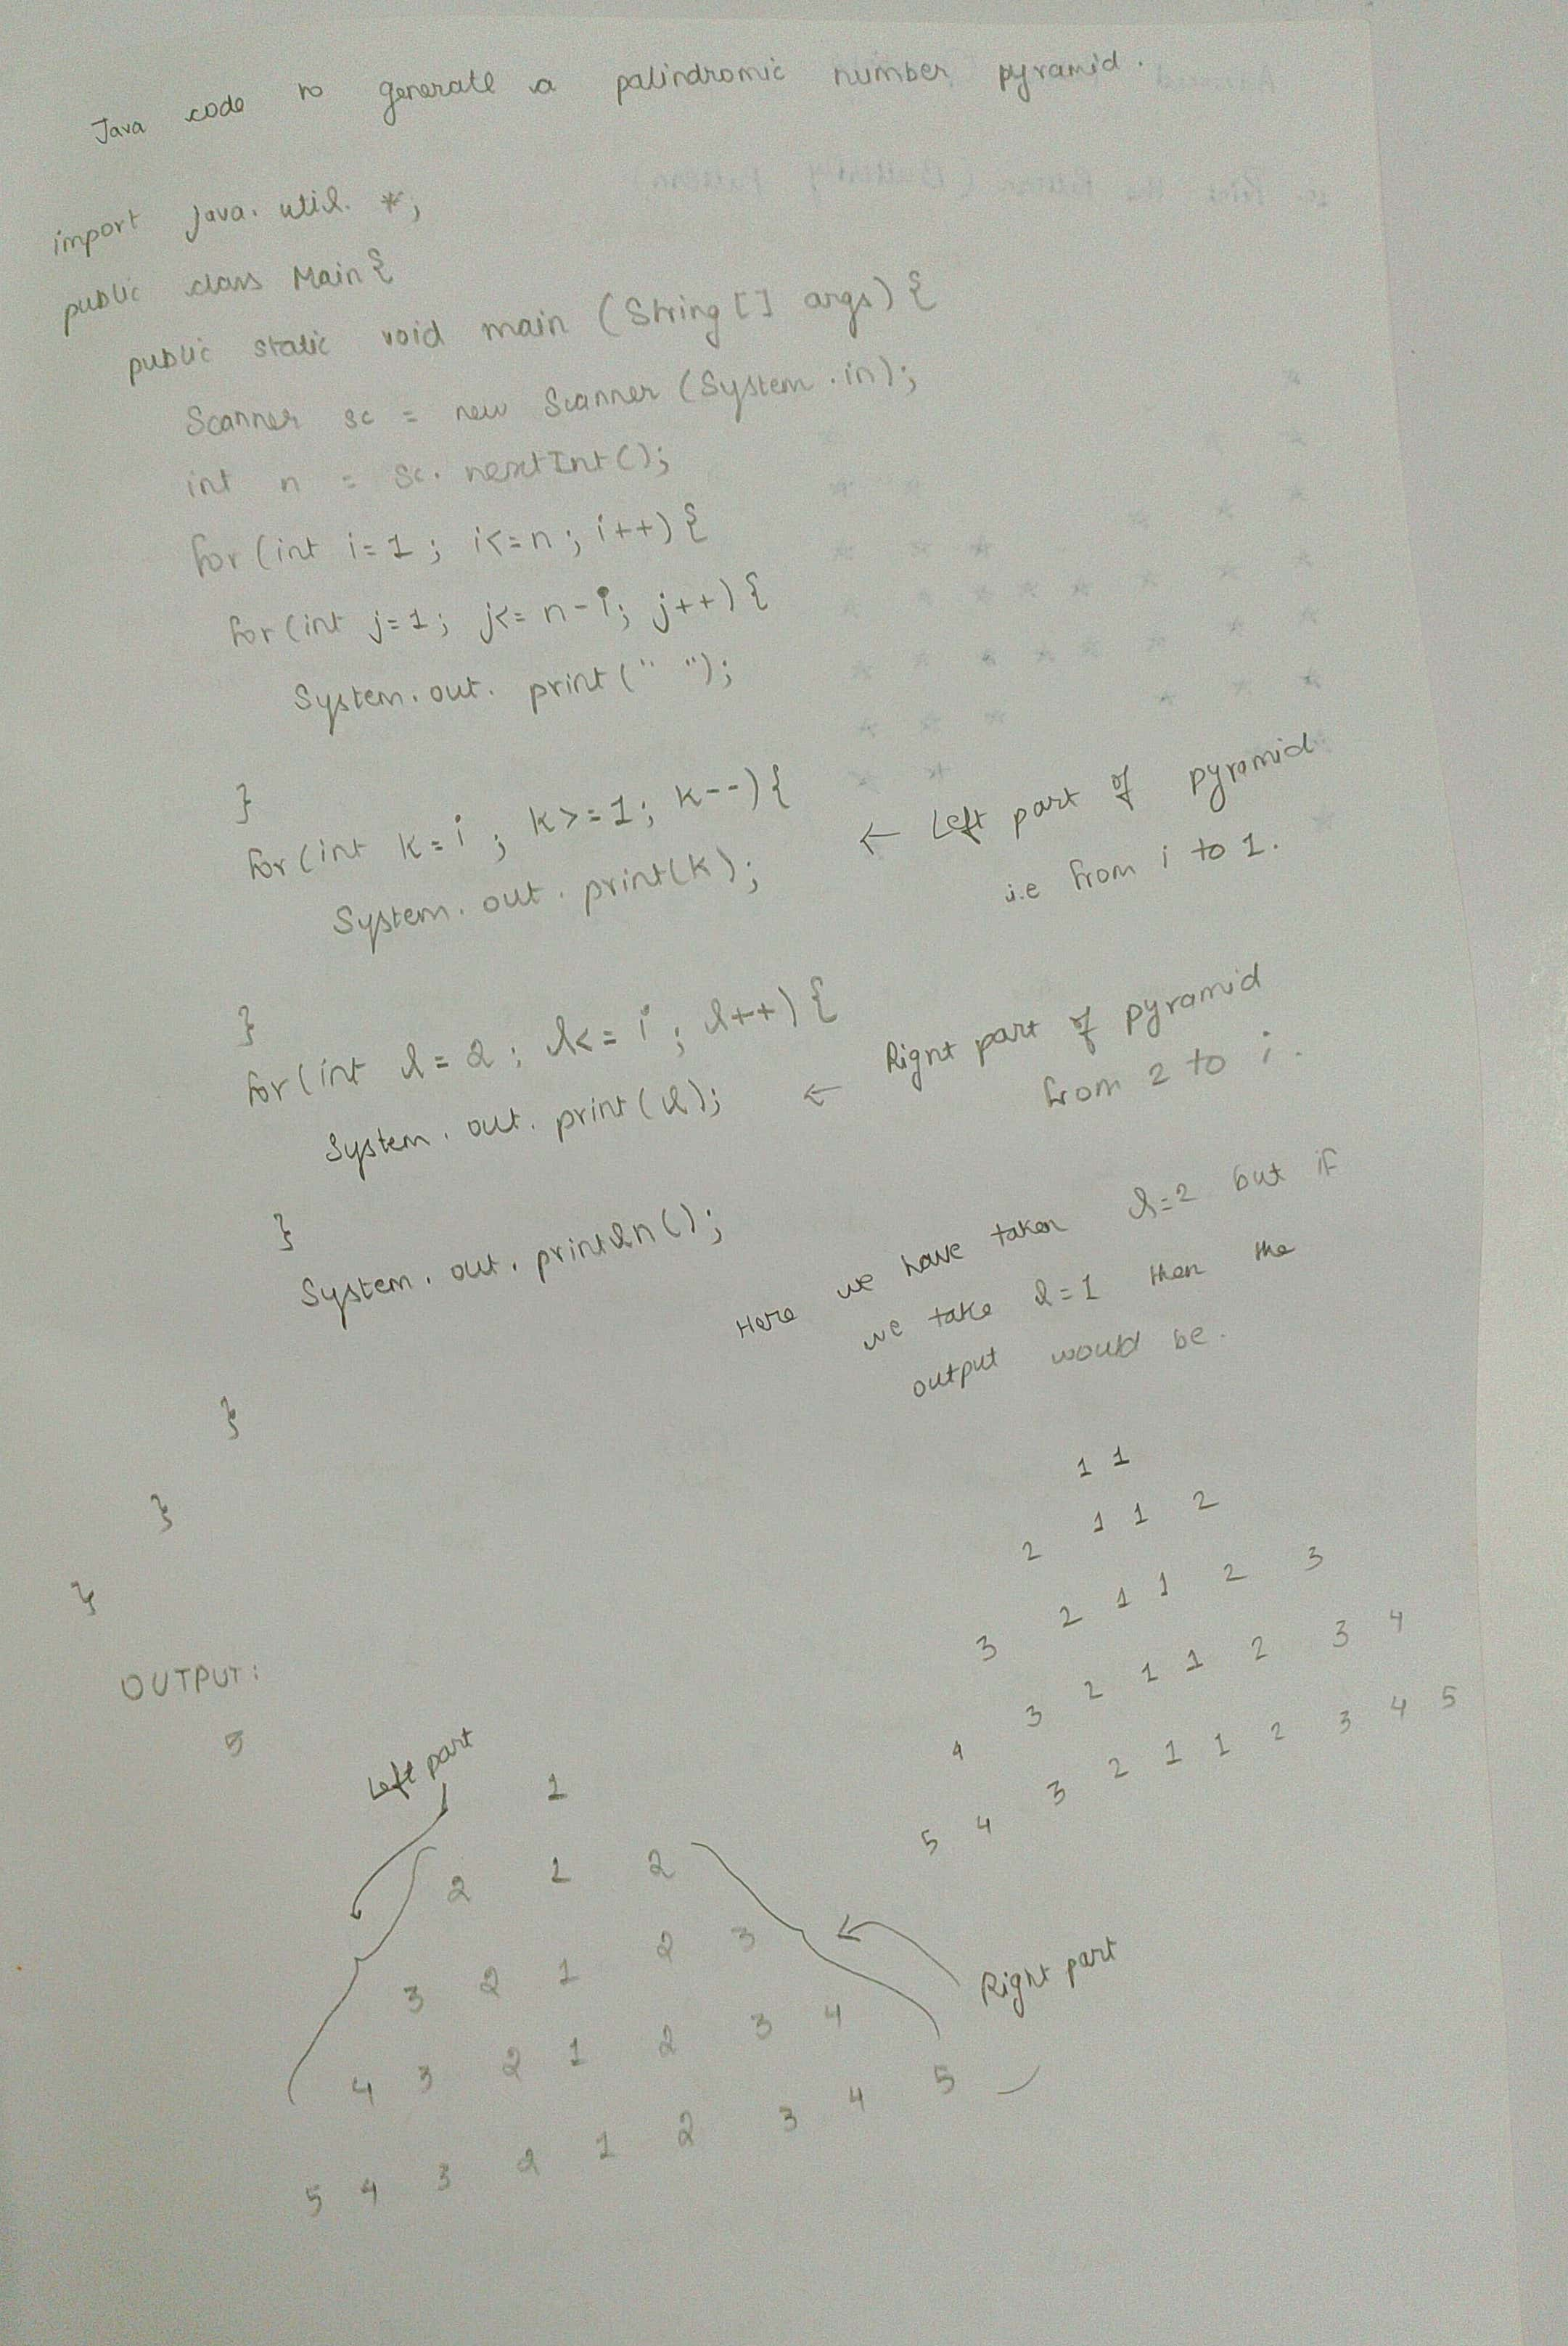 Java code to generate a palindromic number pyramid.
import java.util.*;
public class Main{
public static void main (String[] args) {
Scanner sc = new Scanner (System.in);
int n = sc.nextInt();
for (int i=1; i<=n; i++) {
for (int j=1; j<= n-i; j++) {
System.out.print(" ");
}
for (int k=i; k>=1; k--) {
← Left part of pyramid
System.out.print(k);
i.e from i to 1.
}
for (int l=2; l<=i; l++) {
Right part of pyramid
System.out.print(l); ←
from 2 to i.
}
System.out.println();
Here we have taken l=2 but if
we take l=1 then the
output would be.
}
}
}
1 1
2 1 1 2
3 2 1 1 2 3
4 3 2 1 1 2 3 4
5 4 3 2 1 1 2 3 4 5
OUTPUT:
5
Left part
1
2 1 2
3 2 1 2 3
4 3 2 1 2 3 4
5 4 3 2 1 2 3 4 5
Right part